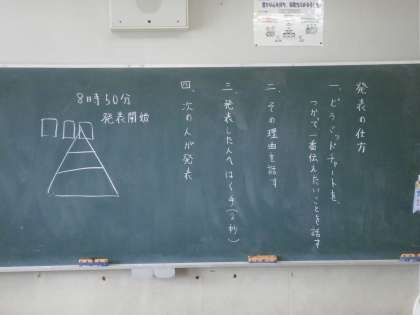 発表の仕方
一、ピラミッドチャートを、
つかって一番伝えたいことを話す
二、その理由を話す
三、発表した人へはく手(2秒)
四、次の人が発表
8時50分
発表開始